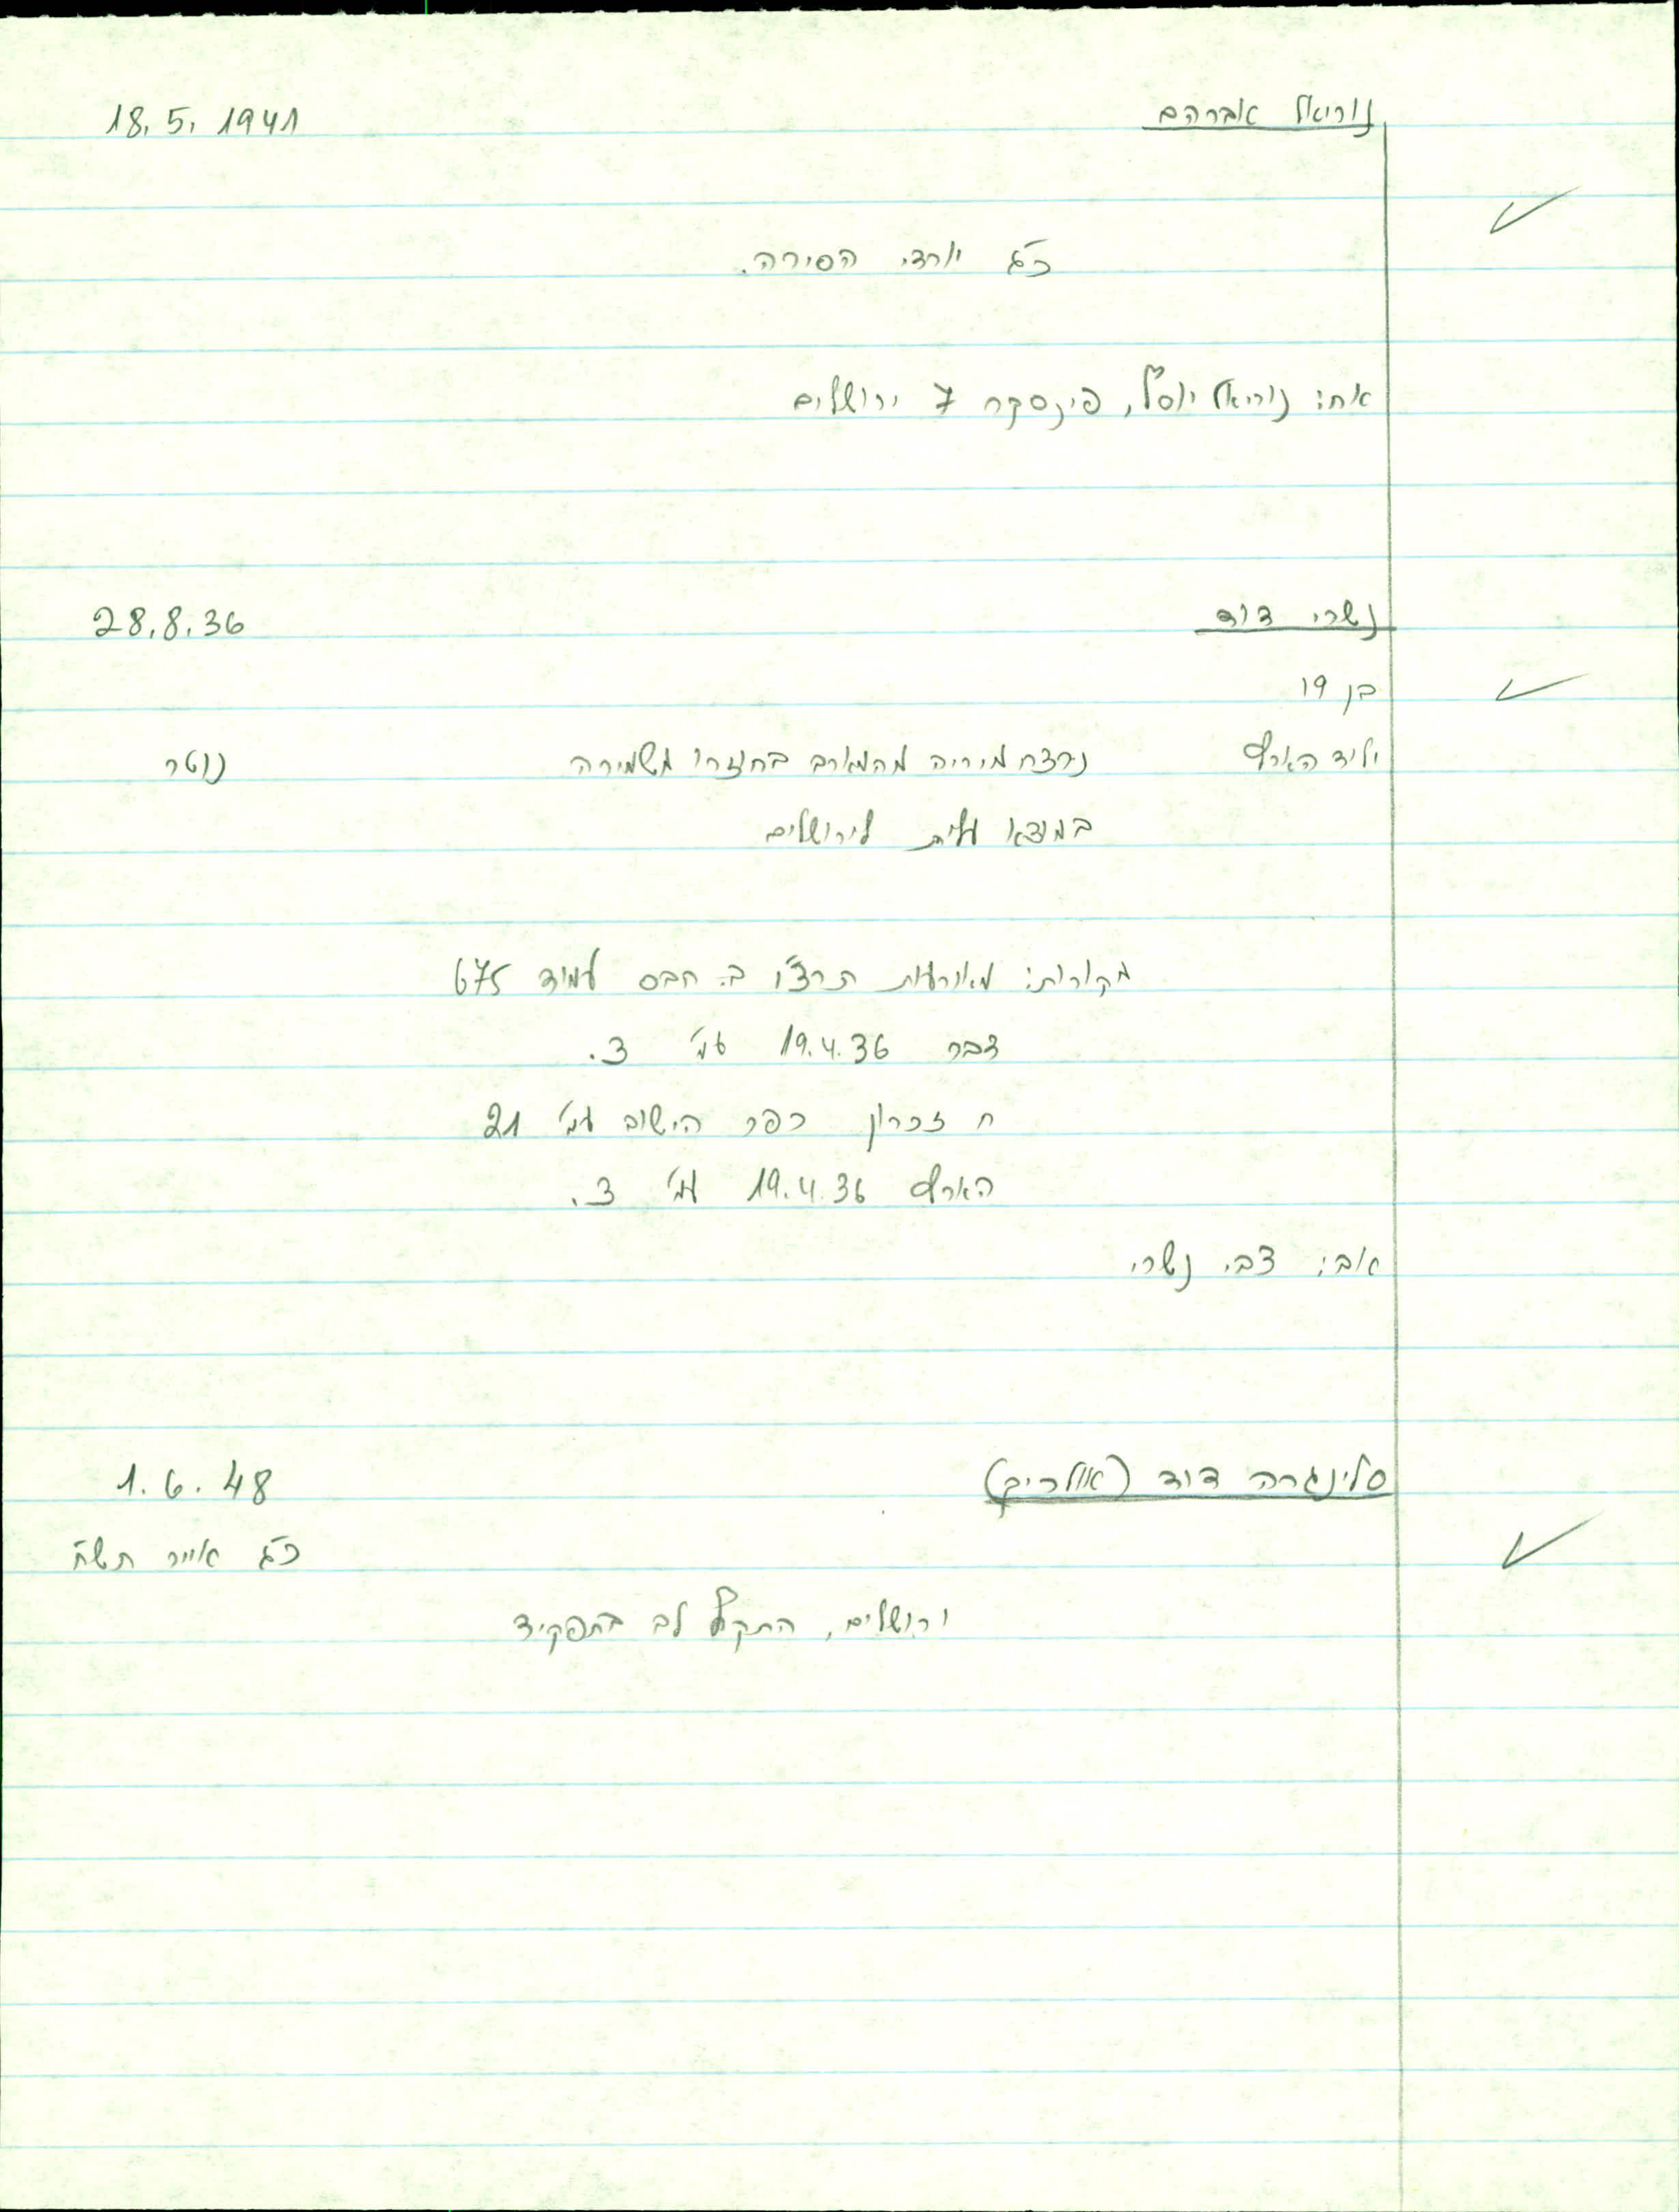 נוריאל אברהם 18.5.1941
כ"ג יורדי הסירה.
אח: נוריאל יוסף, פינסקר 7 ירושלים
נשרי דוד 28.8.36
בן 19
יליד הארץ נרצח מיריה מהמארב בחזרו משמירה נוטר
במוצא עלית לירושלים
מקורות: מאורעות תרצ"ו ב. חבס עמוד 675
דבר 19.4.36 עמ' 3.
זכרון כפר הישוב עמ' 21
הארץ 19.4.36 עמ' 3.
אב: צבי נשרי
דוד 1.6.48
כ"ג אייר תש"ח
ירושלים, התקף לב בתפקיד